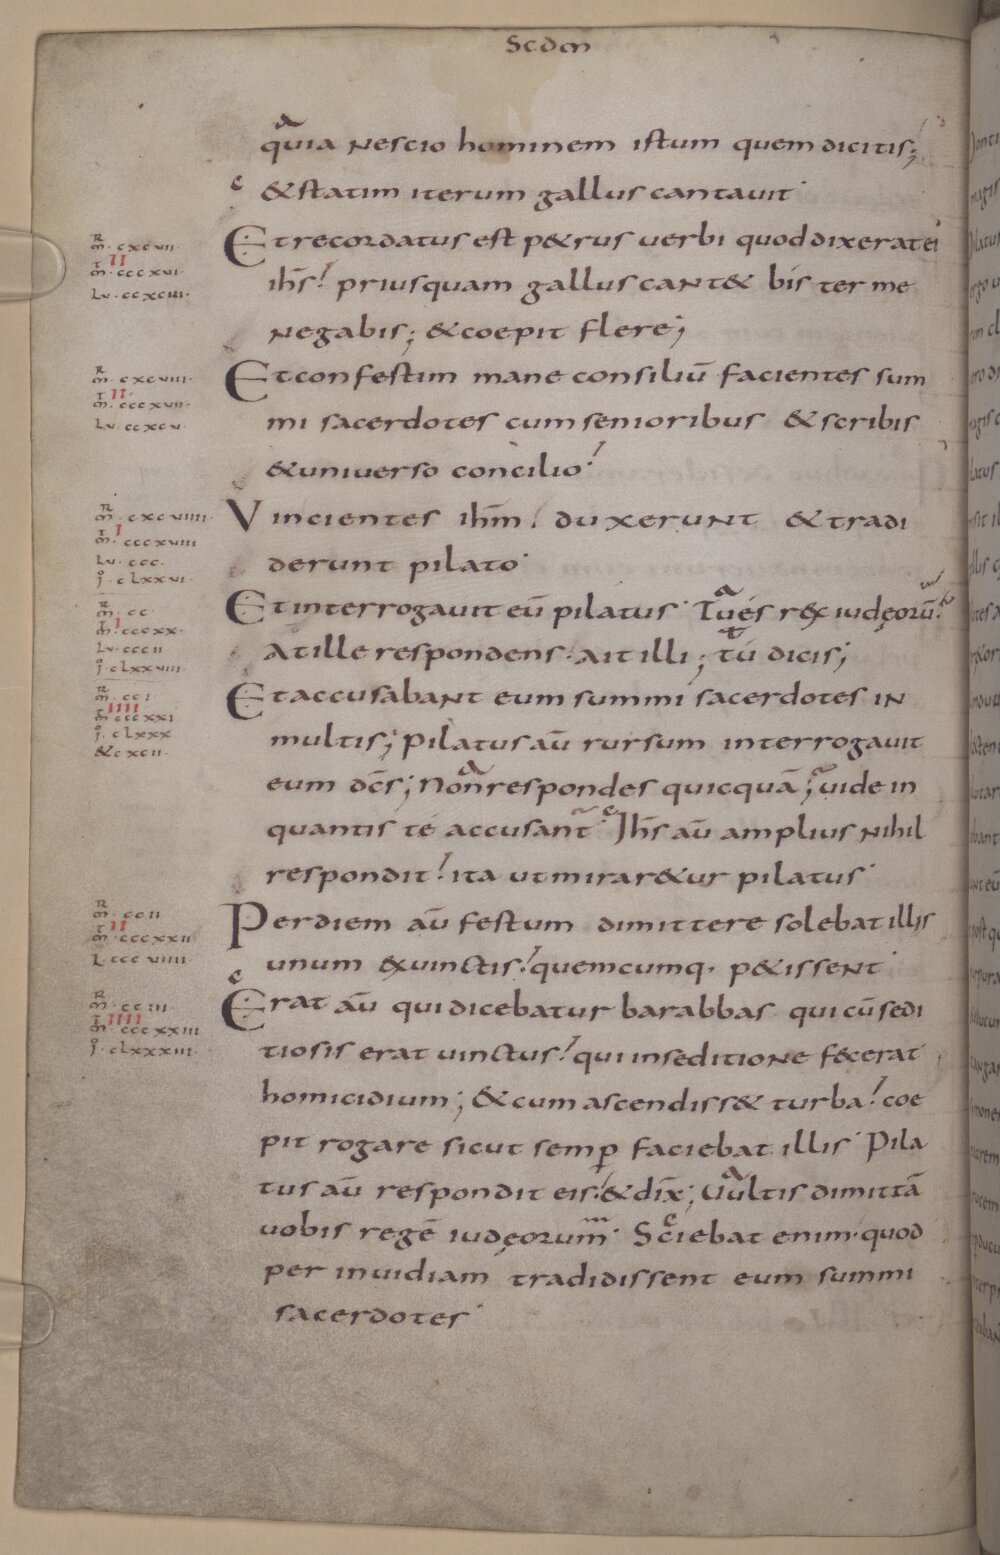 Scdm
quia nescio hominem istum quem dicitis;
& statim iterum gallus cantauit·
R
m̄· cxcvii·
t II
m̄· cccxvi·
Lu· ccxciii·
Et recordatus est p&rus uerbi quod dixerat ei
ih̄s! priusquam gallus cant& bis ter me
negabis; & coepit flere;
R
m̄· cxcviii·
t II
m̄· cccxvii·
Lu· ccxcv·
Et confestim mane consiliū facientes sum
mi sacerdotes cum senioribus & scribis
& uniuerso concilio!
R
m̄· cxcviiii·
t I
m̄· cccxviii
Lu· ccc·
j· clxxvi·
Vincientes ih̄m! duxerunt & tradi
derunt pilato·
R
m̄· cc·
t I
m̄· cccxx·
Lu· cccii
j· clxxviii·
Et interrogauit eū pilatus· Tu és rex iudęorū·
at ille respondens· ait illi; tú dicis;
R
m̄· cci
t IIII
m̄· cccxxi
j· clxxx
&cxcii·
Et accusabant eum summi sacerdotes in
multis; Pilatus aū rursum interrogauit
eum dc̄s; Non respondes quicquā; uide in
quantis té accusant̄· Ih̄s aū amplius nihil
respondit! ita ut mirar&ur pilatus·
R
m̄· ccii
t II
m̄· cccxxii
L· cccviiii·
Per diem aū festum dimittere solebat illis
unum ex uinctis! quemcumq· p&issent·
R
m̄· cciii·
t IIII
m̄· cccxxiii
j· clxxxiii·
Erat aū qui dicebatur barabbas qui cū sedi
tiosis erat uinctus! qui in seditione fecerat
homicidium; & cum ascendiss& turba! coe
pit rogare sicut semꝑ faciebat illis· Pila
tus aū respondit eis! & dix̄; Uultis dimittā
uobis regē iudęorum· Sciebat enim· quod
per inuidiam tradidissent eum summi
sacerdotes·